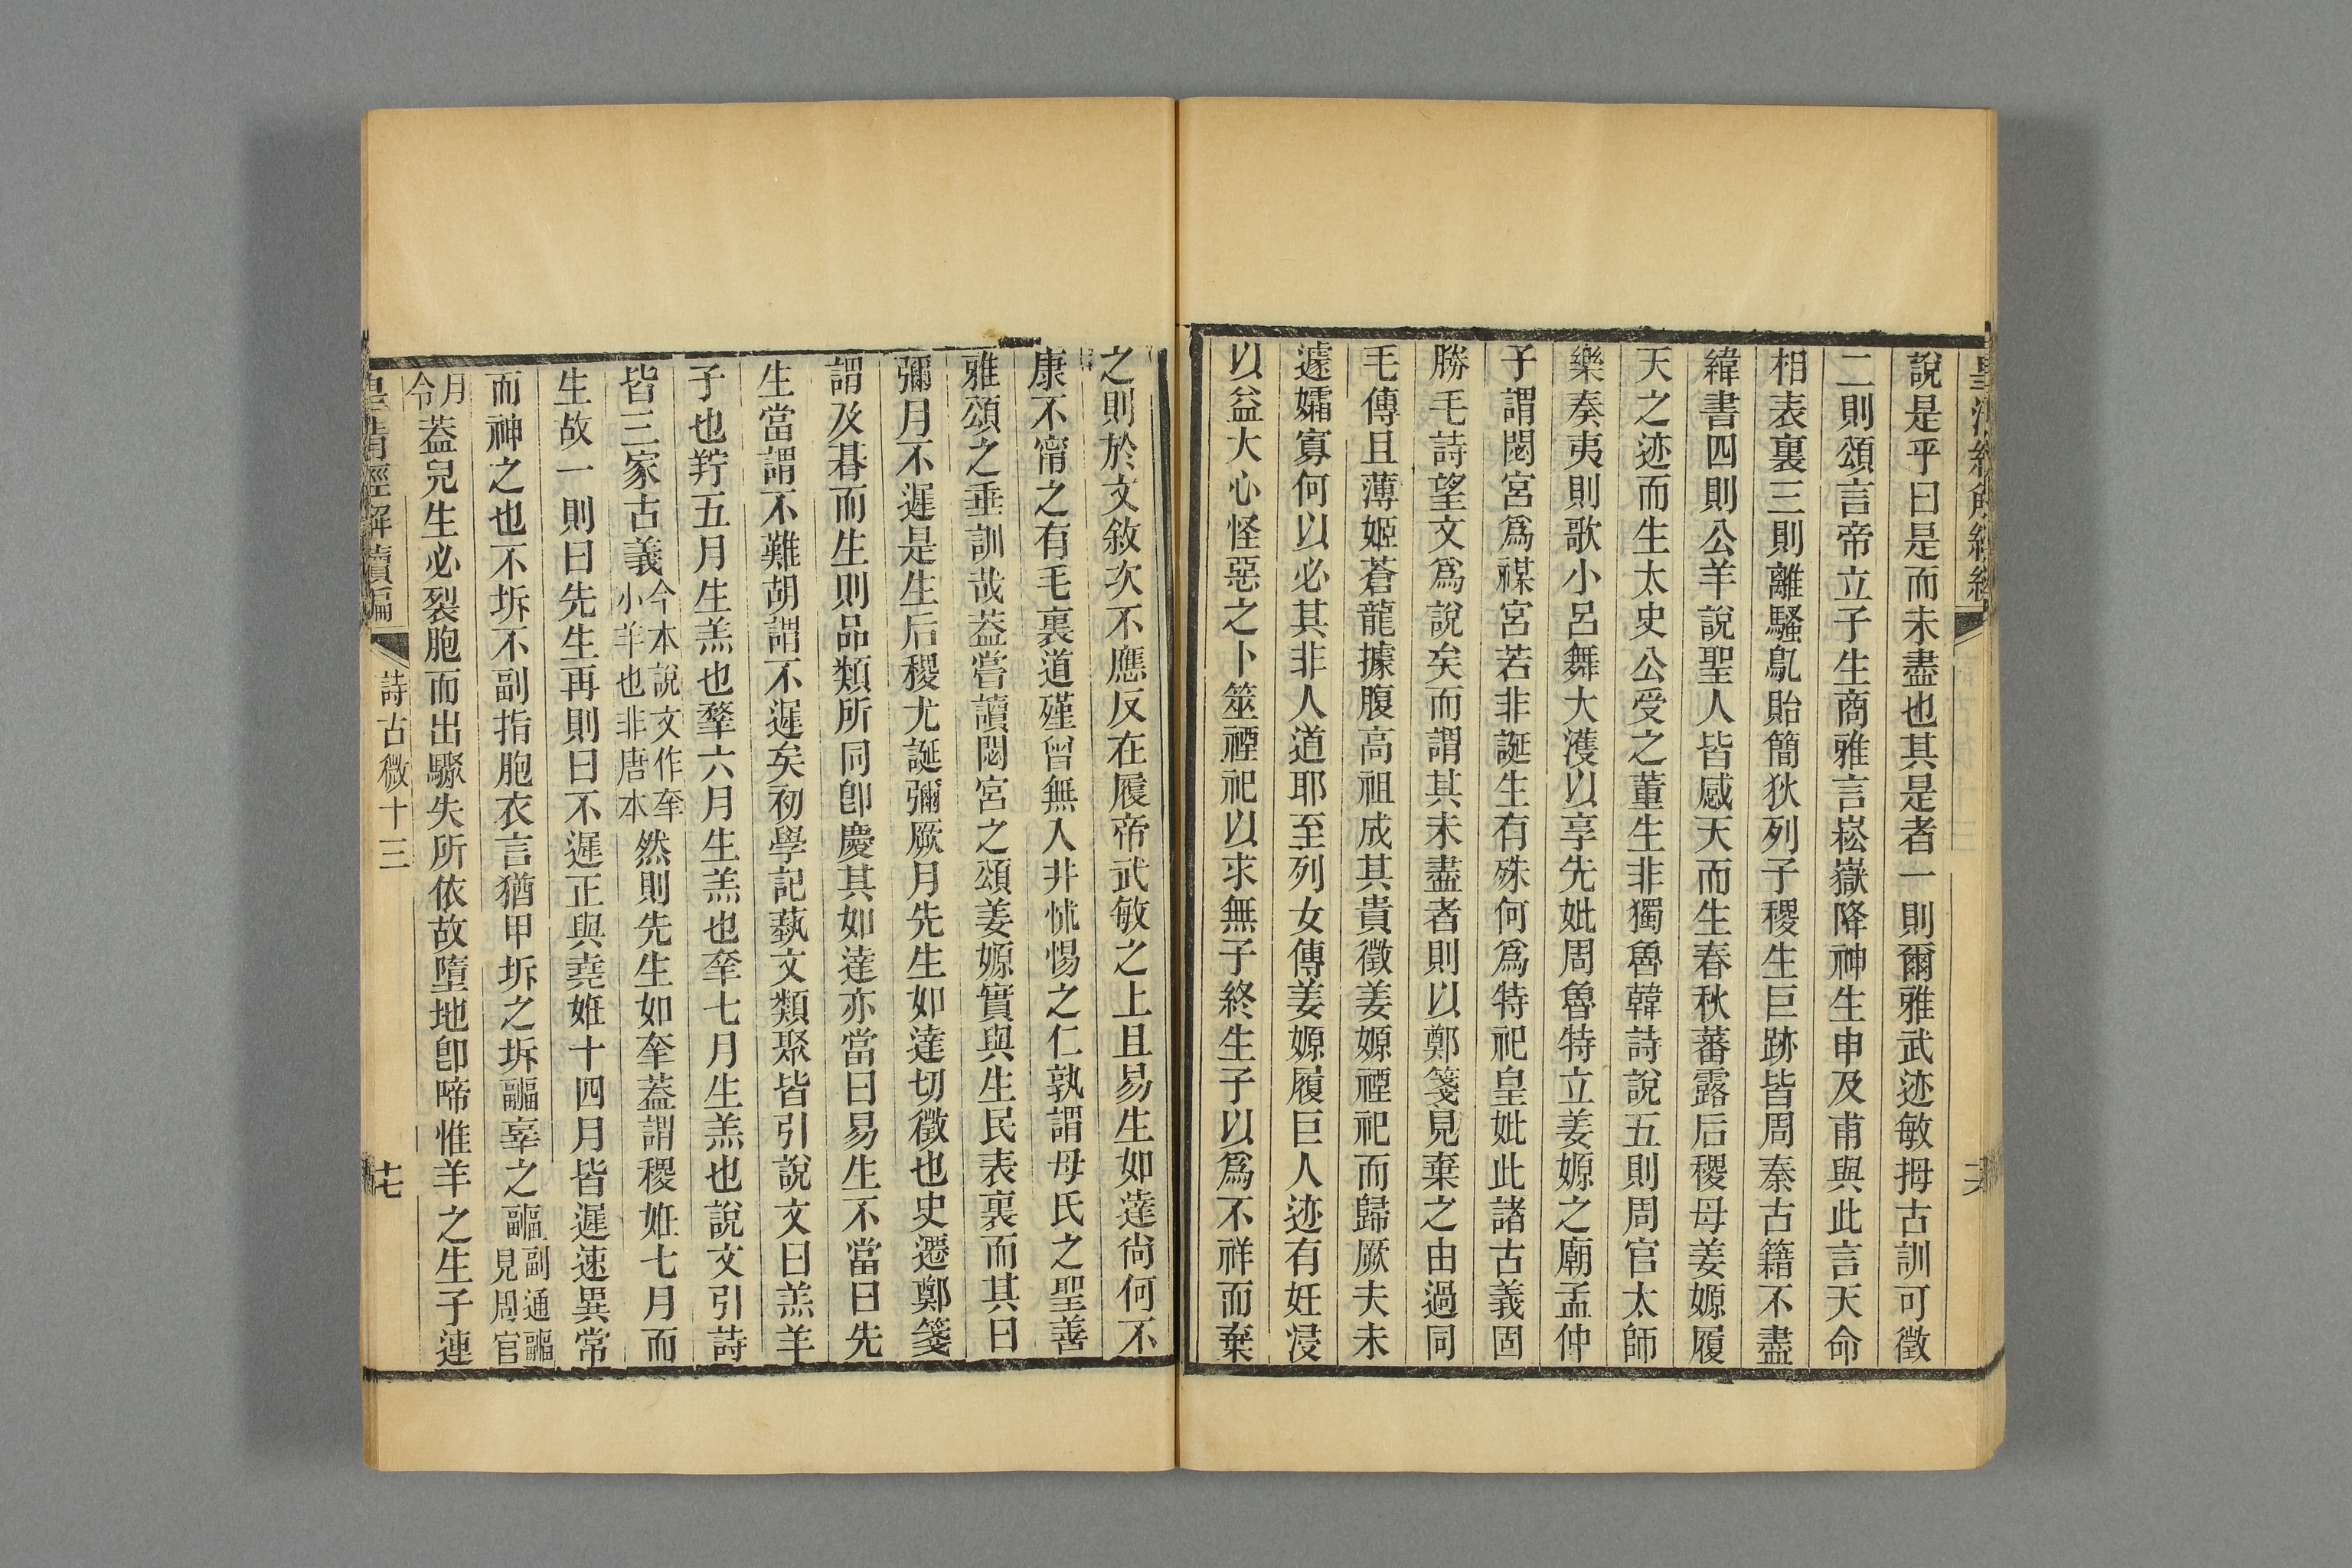 說是乎曰是而未盡也其是者一則爾雅武迹敏拇古訓可徵
二則頌言帝立子生商雅言崧嶽降神生申及甫與此言天命
相表裏三則離騷鳦貽簡狄列子稷生巨跡皆周秦古籍不盡
緯書四則公羊說聖人皆感天而生春秋蕃露后稷母姜嫄履
天之迹而生太史公受之董生非獨魯韓詩說五則周官太師
樂奏夷則歌小呂舞大濩以享先妣周魯特立姜嫄之廟孟仲
子謂閟宮爲禖宮若非誕生有殊何爲特祀皇妣此諸古義固
勝毛詩望文爲說矣而謂其未盡者則以鄭箋見棄之由過同
毛傳且薄姬蒼龍據腹高祖成其貴徵姜嫄禋祀而歸厥夫未
遽孀寡何以必其非人道耶至列女傳姜嫄履巨人迹有妊浸
以益大心怪惡之卜筮禋祀以求無子終生子以爲不祥而棄
之則於文敘次不應反在履帝武敏之上且易生如達尙何不
康不甯之有毛裏道殣曾無入井怵惕之仁孰謂母氏之聖善
雅頌之垂訓哉蓋嘗讀閟宮之頌姜嫄實與生民表裏而其曰
彌月不遲是生后稷尤誕彌厥月先生如達切徵也史遷鄭箋
謂及朞而生則品類所同卽慶其如達亦當曰易生不當曰先
生當謂不難胡謂不遲矣初學記藝文類聚皆引說文曰羔羊
子也羜五月生羔也䍮六月生羔也羍七月生羔也說文引詩
皆三家古義今本說文作羍小羊也非唐本然則先生如羍蓋謂稷妊七月而
生故一則曰先生再則曰不遲正與堯妊十四月皆遲速異常
而神之也不坼不副指胞衣言猶甲坼之坼疈辜之疈副通疈見周官
月令蓋兒生必裂胞而出驟失所依故墮地卽啼惟羊之生子連
皇清經解續編
詩古微十三
十七